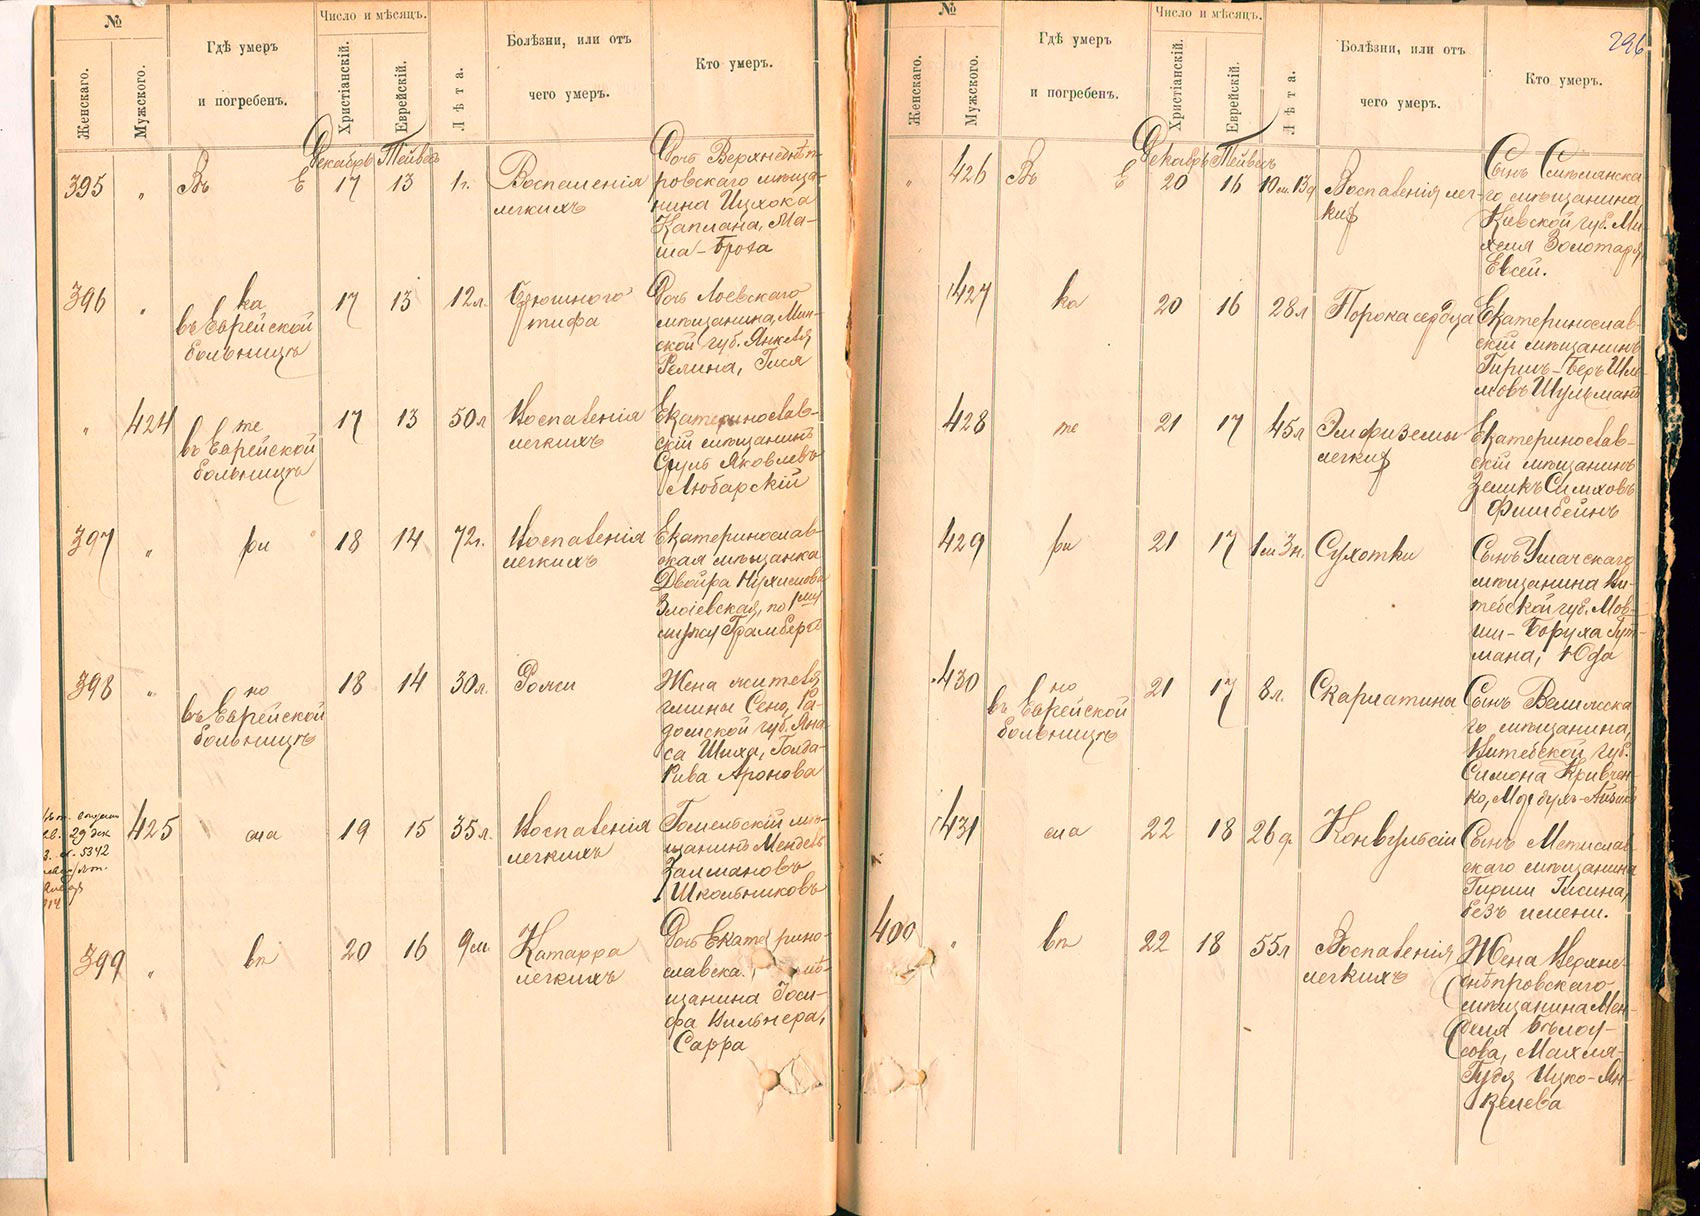 №
Женскаго.
Мужского.
Гдѣ умеръ
и погребенъ.
Число и мѣсяцъ.
Христіанскій.
Еврейскій.
Лѣта.
Болѣзни, или отъ
чего умеръ.
Кто умеръ.
Декабрь Тейвесъ
395 „ Въ Е 17 13 1 г.
Воспаленія
легкихъ
Дочь Верхнеднѣп-
ровскаго мѣща-
нина Ицхока
Каплана, Ма-
ша-Броха
396 „ ка
въ Еврейской
больницѣ
17 13 12 л.
Брюшного
тифа
Дочь Лоевскаго
мѣщанина, Мин-
ской губ. Янкеля
Релина, Геся
„ 424 те
въ Еврейской
больницѣ
17 13 50 л
Воспаленія
легкихъ
Екатеринослав-
скій мѣщанинъ
Сруль Яковлевъ
Любарскій
397 „ ри 18 14 72 г.
Воспаленія
легкихъ
Екатеринослав-
ская мѣщанка
Двойра Нухимова
Злоіевская, по 1му
мужу Грамберг
398 „ но
въ Еврейской
больницѣ
18 14 30 л.
Рожи
Жена жителя
гмины Сено, Ра-
домской губ. Яна-
са Шиха, Голда-
Рива Аронова
425 сла 19 15 35 л.
Воспаленія
легкихъ
Гомельскій мѣ-
щанинъ Мендель
Залмановъ
Школьниковъ
399 „ вѣ 20 16 9 м.
Катарра
легкихъ
Дочь Екатерино-
славска.
щанина Іоси-
фа Вильнера,
Сарра
296
№
Женскаго.
Мужского.
Гдѣ умеръ
и погребенъ.
Число и мѣсяцъ.
Христіанскій.
Еврейскій.
Лѣта.
Болѣзни, или отъ
чего умеръ.
Кто умеръ.
Декабрь Тейвесъ
„ 426 Въ Е 20 16 10 м 13 д
Воспаленія лег-
ких
Сынъ Смѣлянска-
го мѣщанина,
Кіевской губ. Ми-
хеля Золотаря,
Евсей.
427 ка 20 16 28 л
Порока сердца
Екатеринослав-
скій мѣщанинъ
Гиршъ-Беръ Шле-
мовъ Шульманъ
428 те 21 17 45 л
Эмфиземы
легких
Екатеринослав-
скій мѣщанинъ
Зеликъ Симховъ
Фишбейнъ
429 ри 21 17 1 м 3 н.
Сухотки
Сынъ Ушачскаго
мѣщанина Ви-
тебской губ. Мов-
ши-Боруха Гут-
мана, Юда
430 но
въ Еврейской
больницѣ
21 17 8 л.
Скарлатины
Сынъ Велижска-
го мѣщанина,
Витебской губ.
Симона Кривчен-
ко,
431 сла 22 18 26 д.
Конвульсіи
Сынъ Мстислав-
скаго мѣщанина
Гирши Гисина,
безъ имени.
400 „ вѣ 22 18 55 л
Воспаленія
легкихъ
Жена Верхне-
днѣпровскаго
мѣщанина Мен-
деля Бѣлоу-
сова, Махля-
Гудя Ицко-Ян-
келева